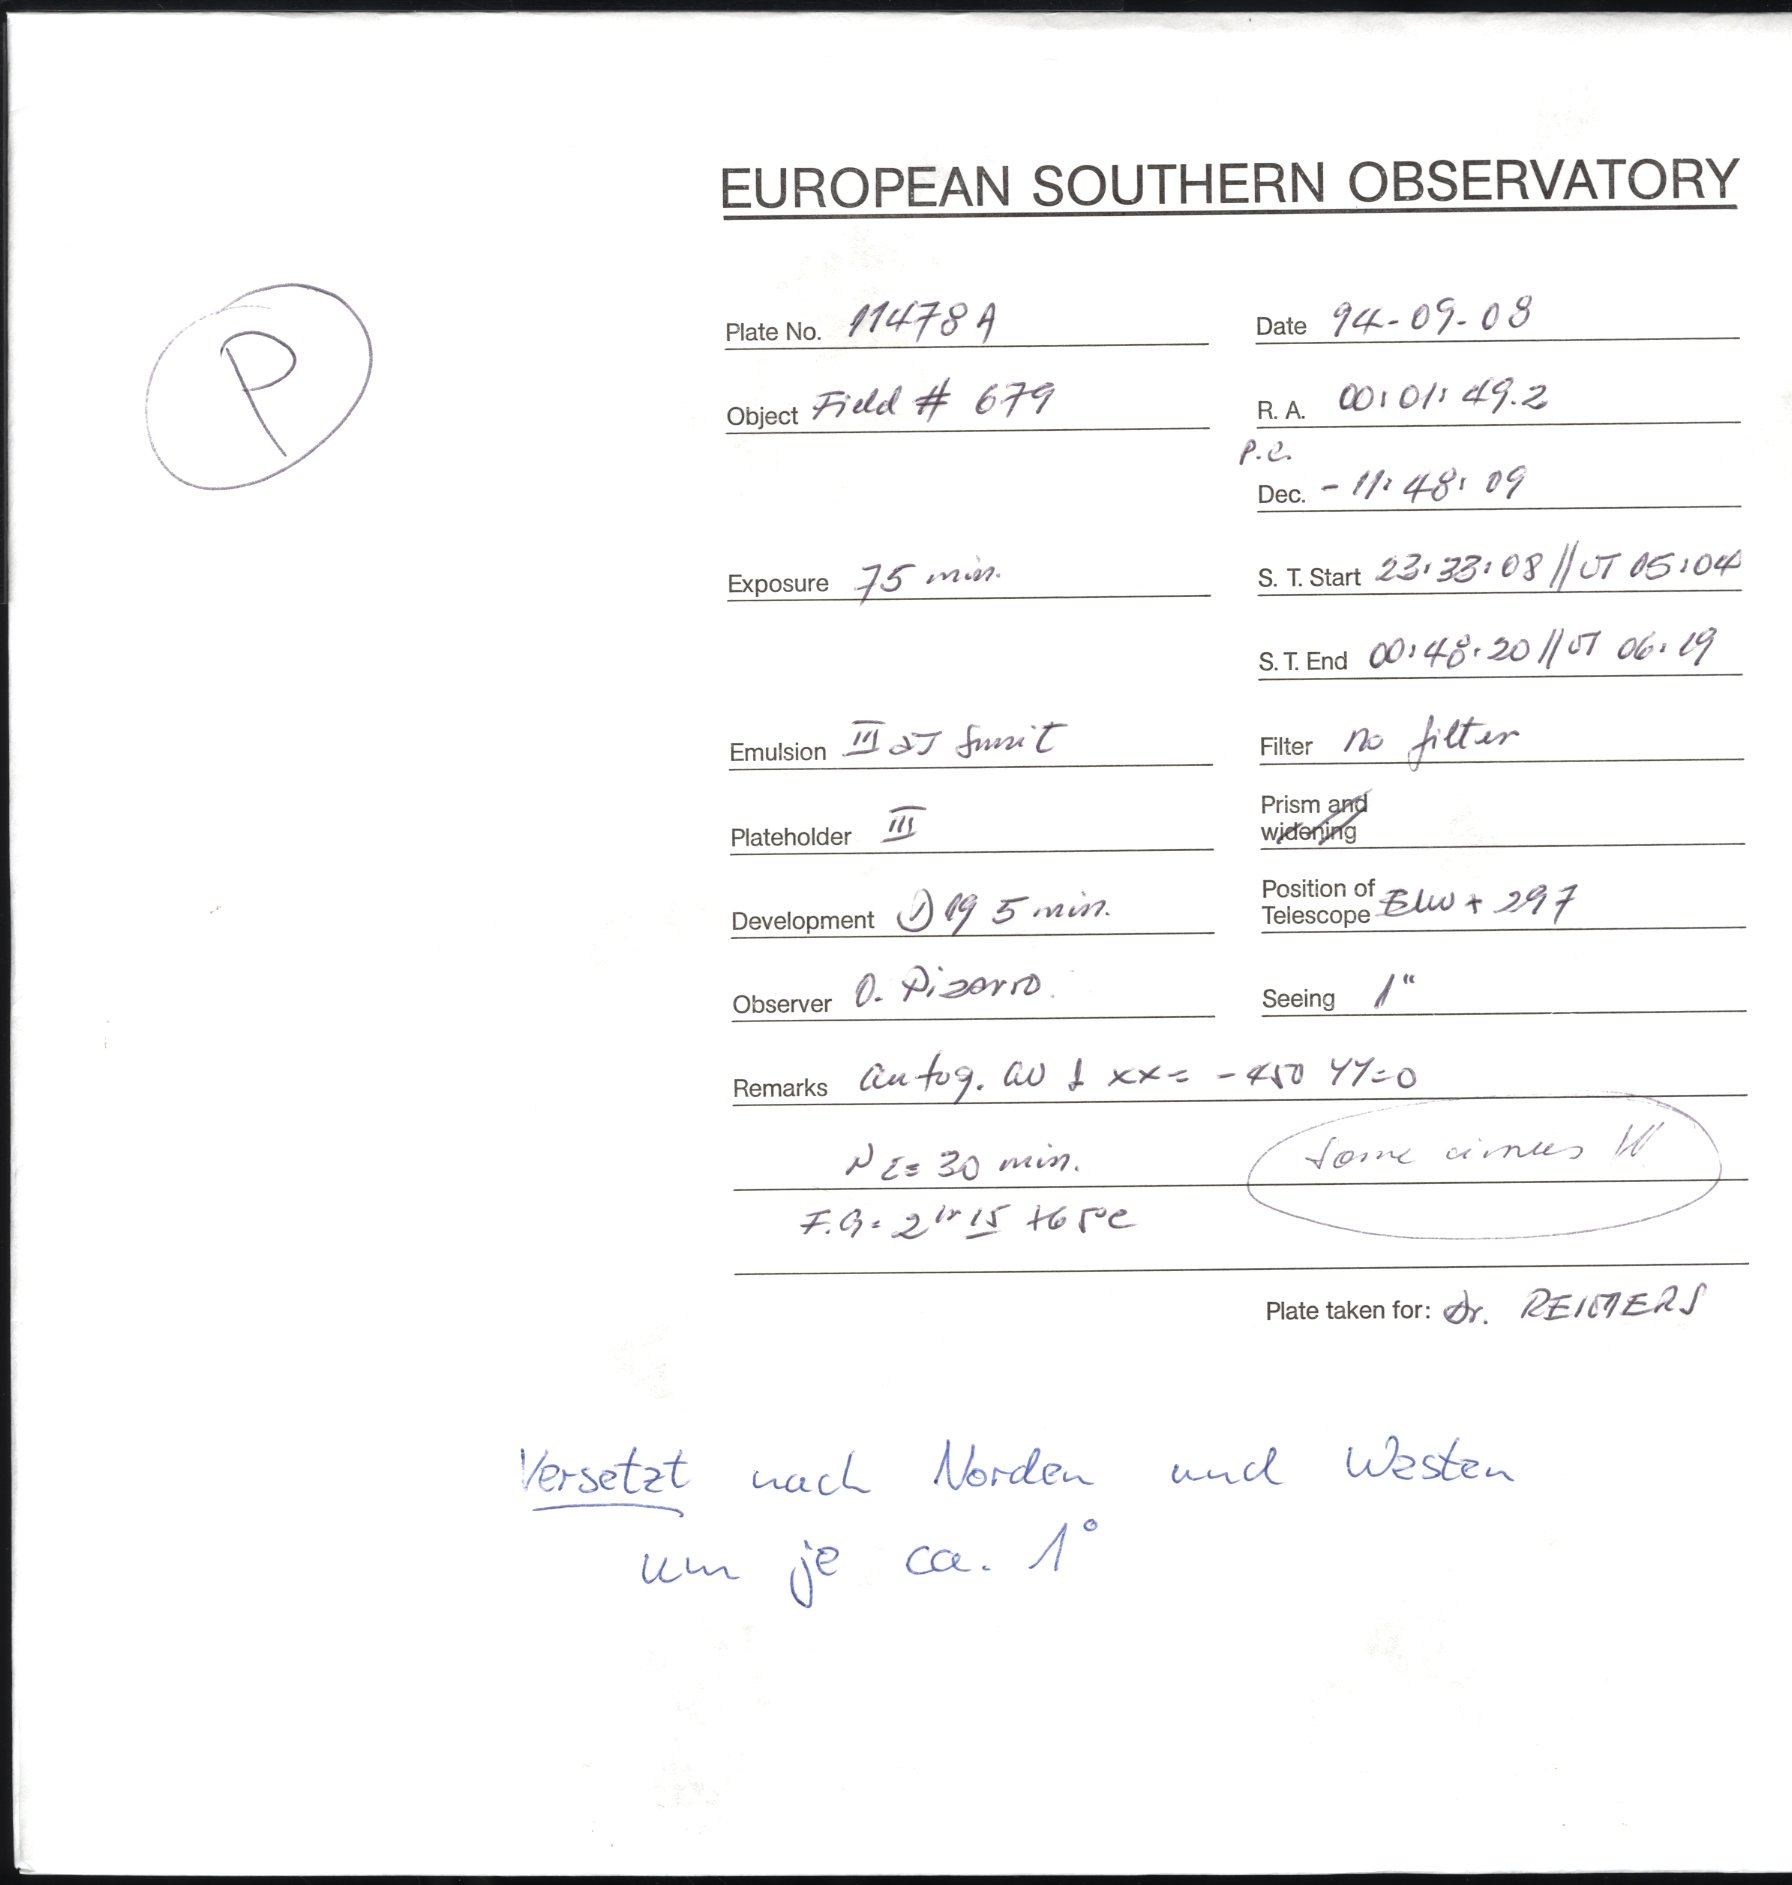 EUROPEAN SOUTHERN OBSERVATORY
P
Plate No. 11478 A
Date 94-09-08
Object Field # 679
R. A. 00:01:49.2
P.C.
Dec. -11:48:09
Exposure 75 min.
S. T. Start 23:33:08 // UT 05:04
S. T. End 00:48:20 // UT 06:19
Emulsion III aJ
Filter no filter
Plateholder III
Prism and widening
Development 19 5 min.
Position of Telescope + 297
Observer O. Pizarro.
Seeing 1"
Remarks autog. xx= -450 YY=0
N 30 min.
some cirrus W
F.G. 2 hr 15 +65°C
Plate taken for: Dr. REIMERS
Versetzt nach Norden und Westen
um je ca. 1°